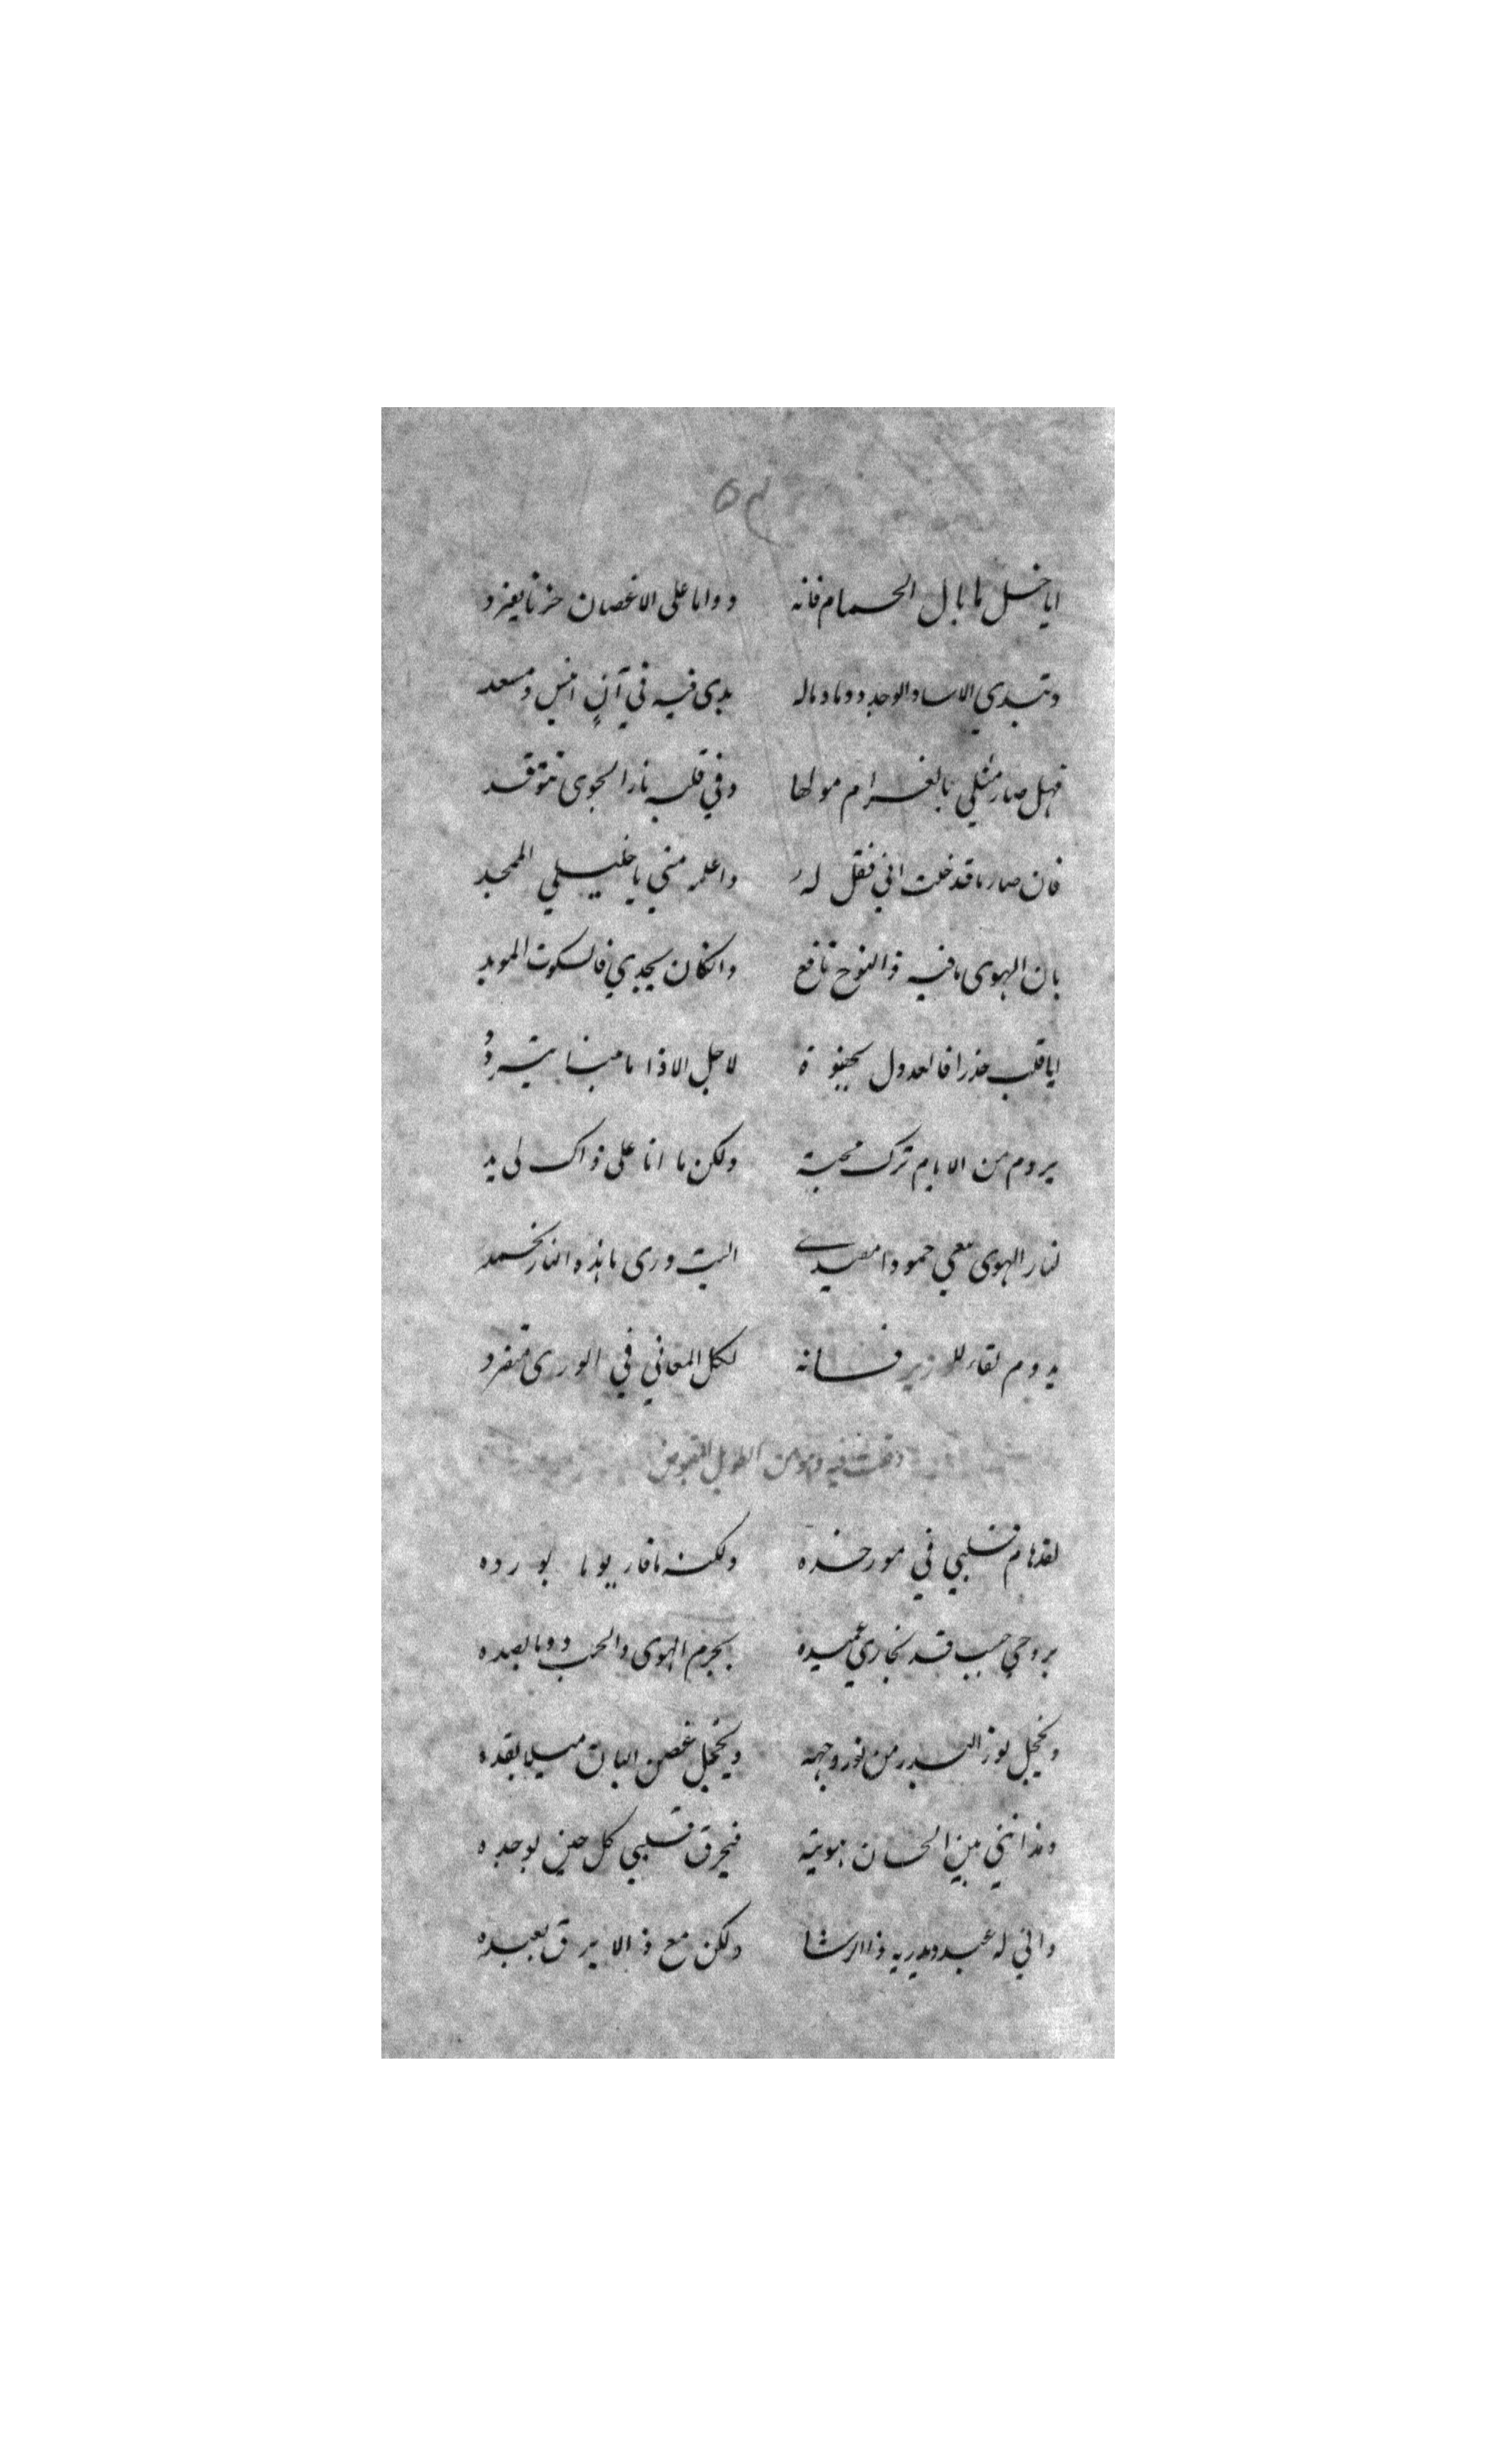 ايا خل ما بال الحمام فانه دواما على الاغصان حزنا يغرد
وتبدي الاسا والوجد دوما وماله بدى فيه في آنٍ انيس ومسعد
فهل صار مثلي بالغرام مولها وفي قلبه نار الجوى تتوقد
فان صار ما قد خلت اني فقل له واعلمه مني يا خليلي الممجد
بان الهوى ما فيه ذا النوح نافع وانكان يجدي فالسكوت المويد
ايا قلب حذرا فالعدول لاجل الاذا ما بيننا يتردد
يروم من الايام ترك محبة ولكن ما انا على ذاك لي يد
لنار الهوى معي خمودا الست درى ما هذه النار تخمد
يدوم لقاء للوزير فانه لكل المعاني في الورى متفرد
وقلت فيه وهو من الطويل المقبوض
لقد هام قلبي في خده ولكنه ما فاز يوما بورده
بروحي حبيب قد يجازي عميده بجرم الهوى والحب دوما بصده
ويخجل نور البدر من نور وجهه ويخجل غصن البان ميلا بقده
ومذ انني بين الحسان هويته فيحرق قلبي كل حين لوجده
واني له عبد ويدريه ذا الرشا ولكن مع ذا لا يرق لعبده